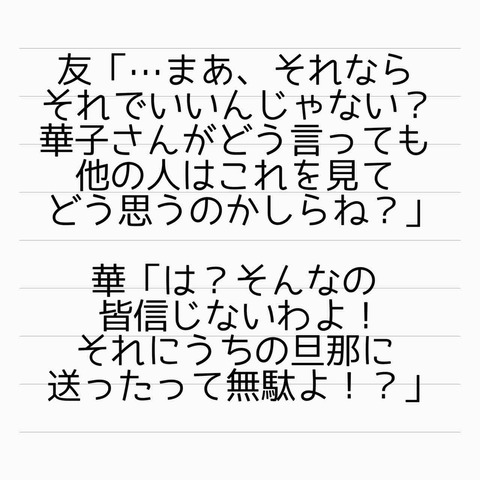 友「…まあ、それなら
それでいいんじゃない？
華子さんがどう言っても
他の人はこれを見て
どう思うのかしらね？」
華「は？そんなの
皆信じないわよ！
それにうちの旦那に
送ったって無駄よ！？」